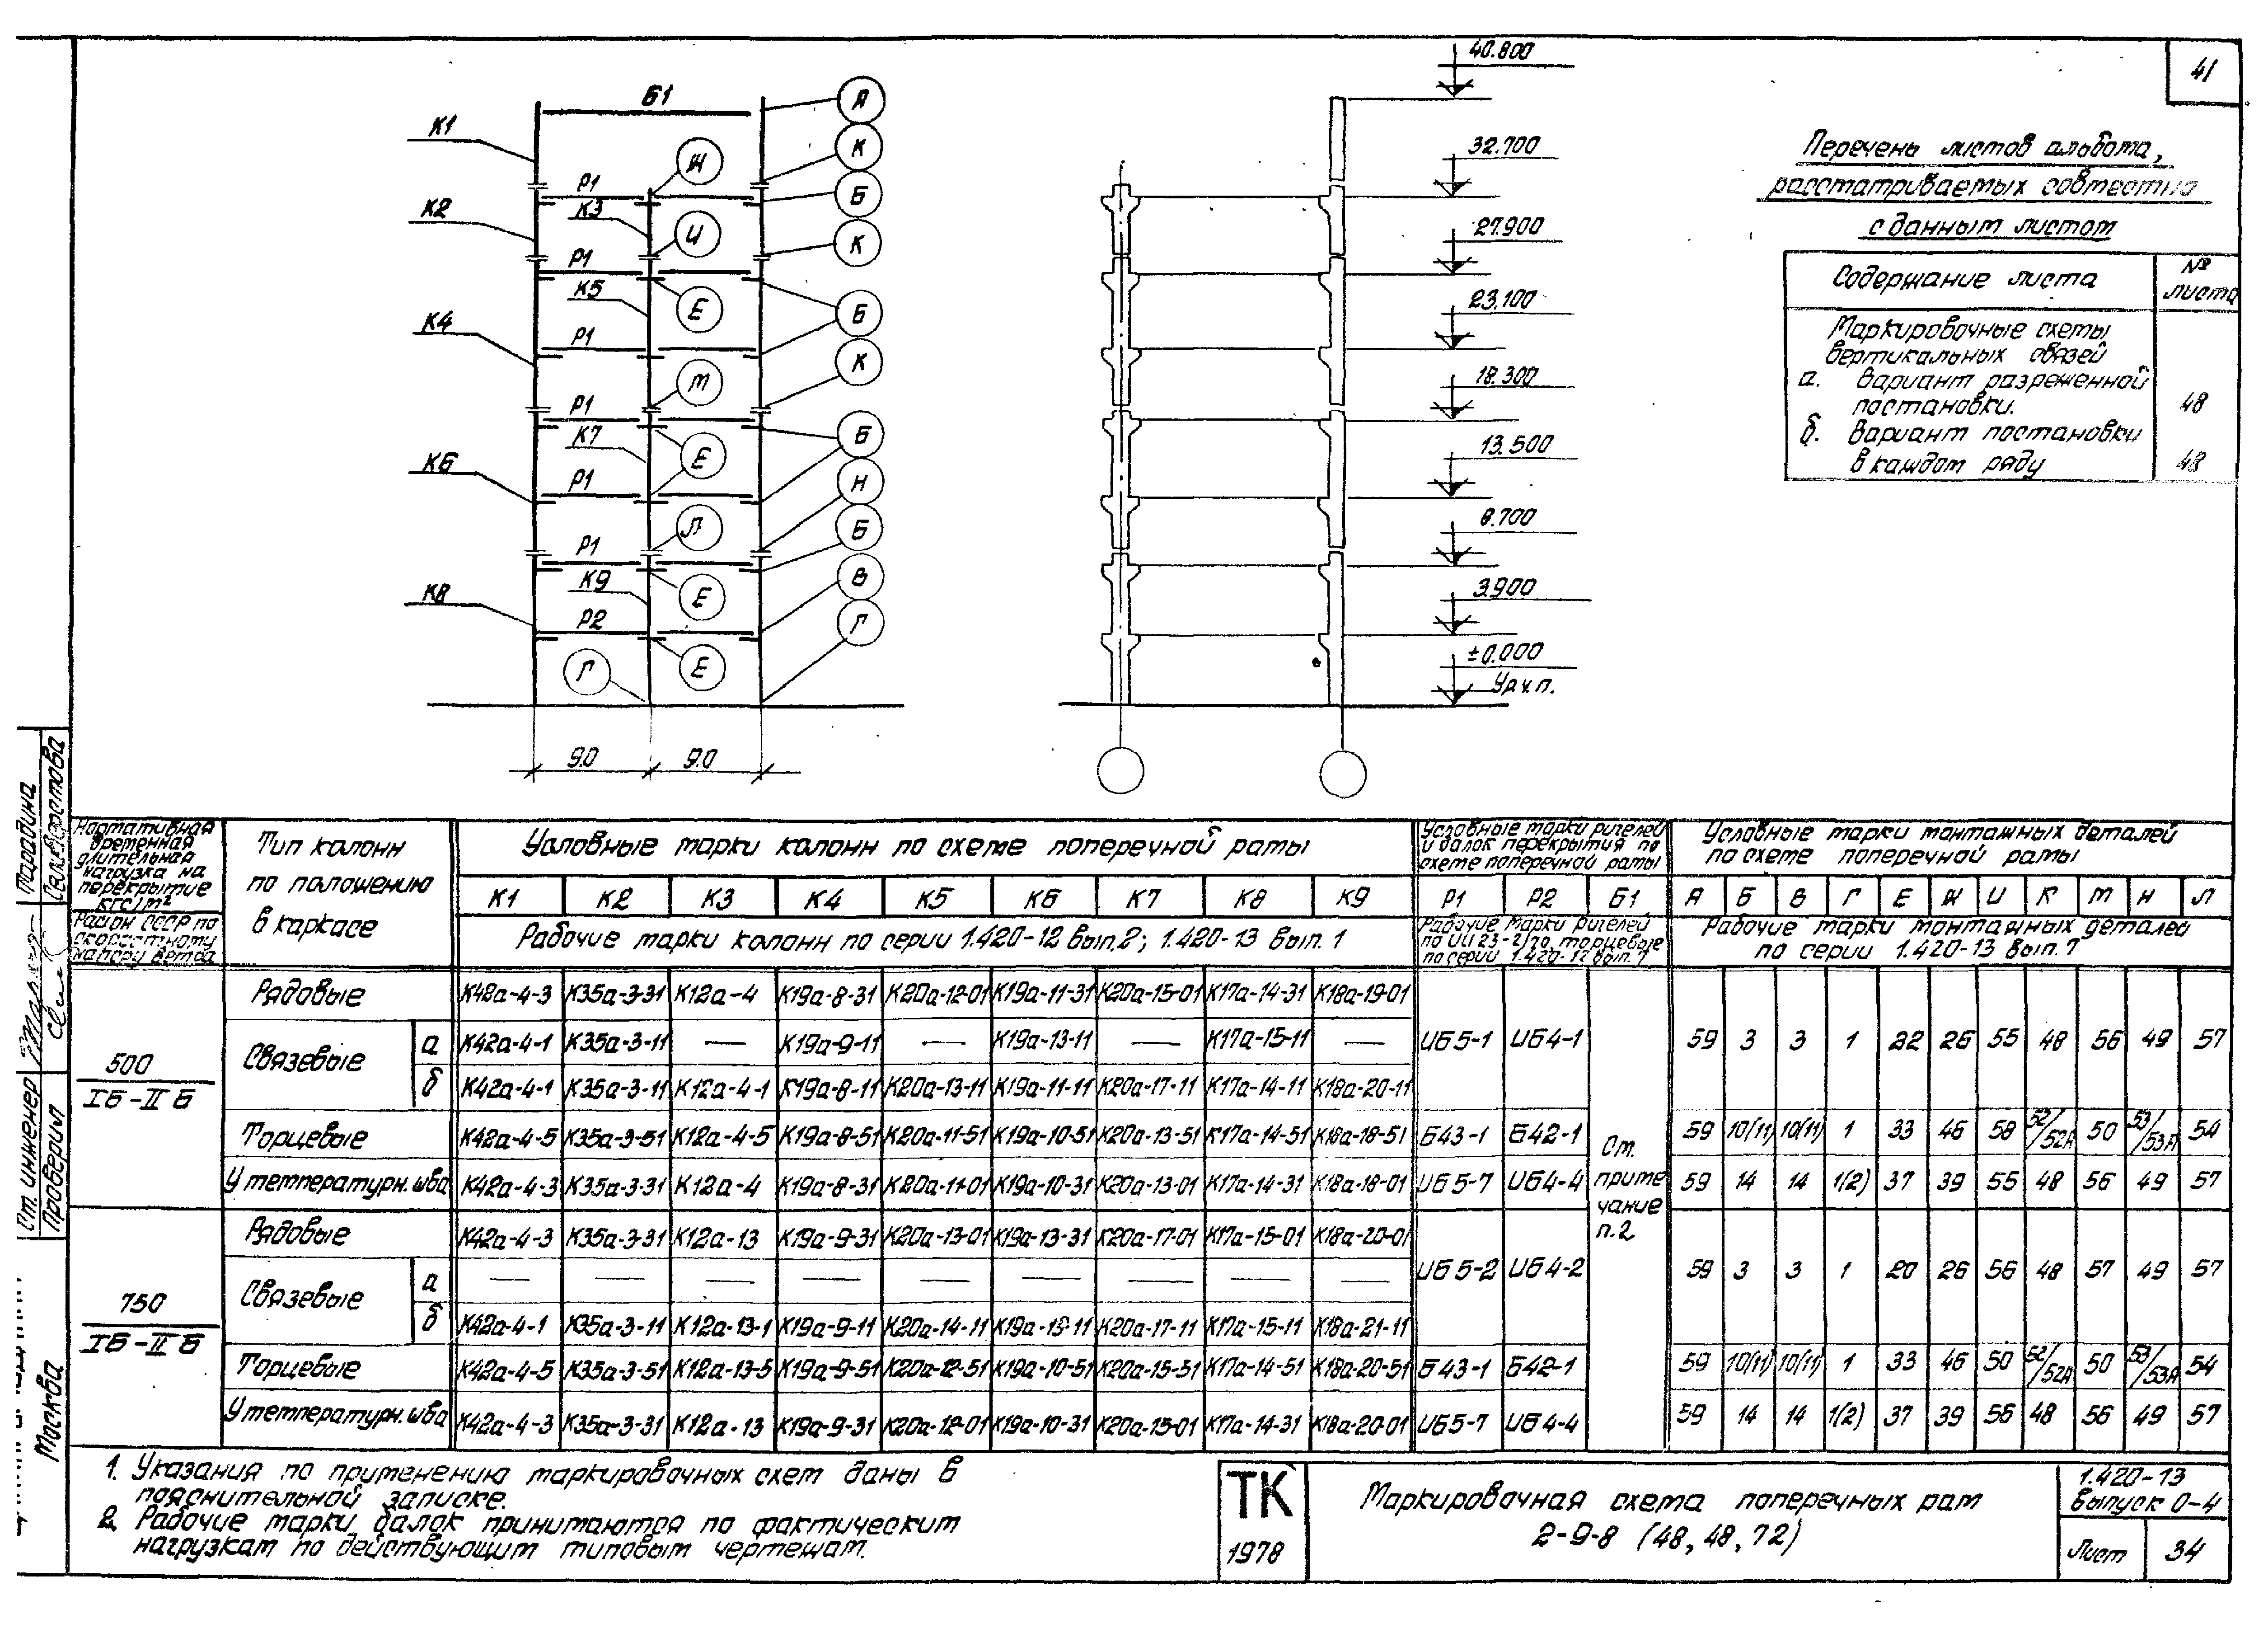 41
Б1
К1
К2
К4
К6
К8
Р1
К3
Р1
К5
Р1
Р1
К7
Р1
Р1
К9
Р2
А
К
Б
К
Б
К
Б
Н
Б
В
Г
Ж
И
Е
М
Е
Л
Е
Е
Г
9.0 9.0
40.800
32.700
27.900
23.100
18.300
13.500
8.700
3.900
±0.000
Ур.ч.п.
Перечень листов альбома,
рассматриваемых совместно
с данным листом
Содержание листа № листа
Маркировочные схемы
вертикальных связей
а. вариант разреженной
постановки. 48
б. вариант постановки
в каждом ряду 48
Нормативная временная длительная нагрузка на перекрытие кгс/м²
Район СССР по скоростному напору ветра
Тип колонн по положению в каркасе
Условные марки колонн по схеме поперечной рамы
К1 К2 К3 К4 К5 К6 К7 К8 К9
Рабочие марки колонн по серии 1.420-12 вып.2; 1.420-13 вып. 1
Условные марки ригелей и балок перекрытия по схеме поперечной рамы
Р1 Р2 Б1
Рабочие марки ригелей по ИИ 23-2/70, торцевые по серии 1.420-12 вып.7
Условные марки монтажных деталей по схеме поперечной рамы
А Б В Г Е Ж И К М Н Л
Рабочие марки монтажных деталей по серии 1.420-13 вып. 7
500
IБ-IIБ
Рядовые К42а-4-3 К35а-3-31 К12а-4 К19а-8-31 К20а-12-01 К19а-11-31 К20а-15-01 К17а-14-31 К18а-19-01
Связевые а К42а-4-1 К35а-3-11 — К19а-9-11 — К19а-13-11 — К17а-15-11 — ИБ5-1 ИБ4-1 59 3 3 1 22 26 55 48 56 49 57
б К42а-4-1 К35а-3-11 К12а-4-1 К19а-8-11 К20а-13-11 К19а-11-11 К20а-17-11 К17а-14-11 К18а-20-11
Торцевые К42а-4-5 К35а-3-51 К12а-4-5 К19а-8-51 К20а-11-51 К19а-10-51 К20а-13-51 К17а-14-51 К18а-18-51 Б43-1 Б42-1 59 10(11) 10(11) 1 33 46 58 52/52А 50 53/53А 54
У температурн. шва К42а-4-3 К35а-3-31 К12а-4 К19а-8-31 К20а-11-01 К19а-10-31 К20а-13-01 К17а-14-31 К18а-18-01 ИБ5-7 ИБ4-4 59 14 14 1(2) 37 39 55 48 56 49 57
См. примечание п.2
750
IБ-IIБ
Рядовые К42а-4-3 К35а-3-31 К12а-13 К19а-9-31 К20а-13-01 К19а-13-31 К20а-17-01 К17а-15-01 К18а-20-01
Связевые а — — — — — — — — — ИБ5-2 ИБ4-2 59 3 3 1 20 26 56 48 57 49 57
б К42а-4-1 К35а-3-11 К12а-13-1 К19а-9-11 К20а-14-11 К19а-13-11 К20а-17-11 К17а-15-11 К18а-21-11
Торцевые К42а-4-5 К35а-3-51 К12а-13-5 К19а-9-51 К20а-12-51 К19а-10-51 К20а-15-51 К17а-14-51 К18а-20-51 Б43-1 Б42-1 59 10(11) 10(11) 1 33 46 50 52/52А 50 53/53А 54
У температурн. шва К42а-4-3 К35а-3-31 К12а-13 К19а-9-31 К20а-12-01 К19а-10-31 К20а-15-01 К17а-14-31 К18а-20-01 ИБ5-7 ИБ4-4 59 14 14 1(2) 37 39 56 48 56 49 57
1. Указания по применению маркировочных схем даны в
пояснительной записке.
2. Рабочие марки балок принимаются по фактическим
нагрузкам по действующим типовым чертежам.
ТК
1978
Маркировочная схема поперечных рам
2-9-8 (48, 48, 72)
1.420-13
Выпуск 0-4
Лист 34
Ст. инженер Парадина
Проверил Селиверстова
Москва